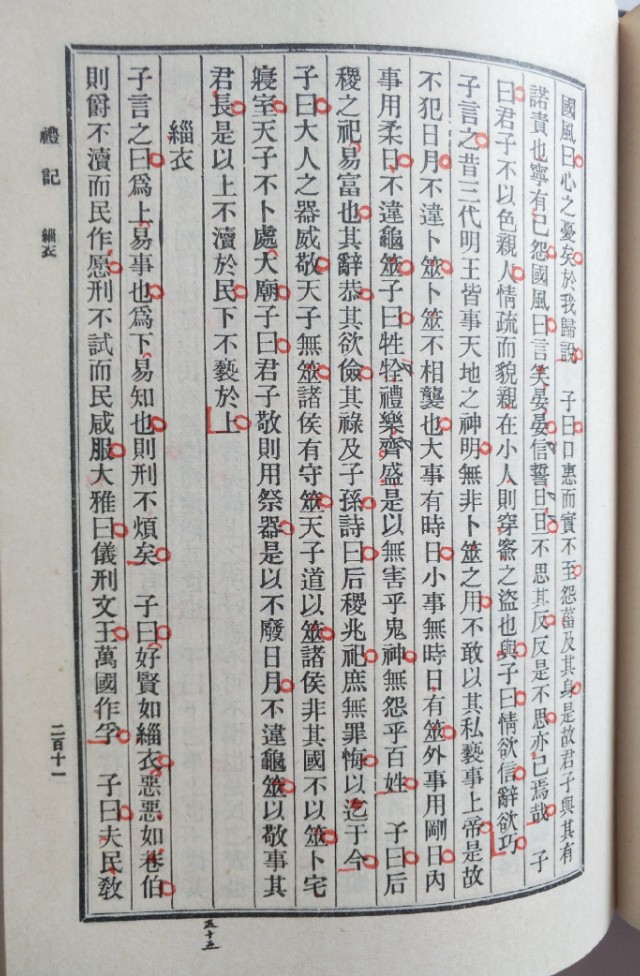 國風曰心之憂矣於我歸說 子曰口惠而實不至怨菑及其身是故君子與其有
諾責也寧有已怨國風曰言笑晏晏信誓旦旦不思其反反是不思亦已焉哉 子
曰君子不以色親人情疏而貌親在小人則穿窬之盜也與子曰情欲信辭欲巧
子言之昔三代明王皆事天地之神明無非卜筮之用不敢以其私褻事上帝是故
不犯日月不違卜筮卜筮不相襲也大事有時日小事無時日有筮外事用剛日內
事用柔日不違龜筮子曰牲牷禮樂齊盛是以無害乎鬼神無怨乎百姓 子曰后
稷之祀易富也其辭恭其欲儉其祿及子孫詩曰后稷兆祀庶無罪悔以迄于今
子曰大人之器威敬天子無筮諸侯有守筮天子道以筮諸侯非其國不以筮卜宅
寢室天子不卜處大廟子曰君子敬則用祭器是以不廢日月不違龜筮以敬事其
君長是以上不瀆於民下不褻於上
緇衣
子言之曰為上易事也為下易知也則刑不煩矣 子曰好賢如緇衣惡惡如巷伯
則爵不瀆而民作愿刑不試而民咸服大雅曰儀刑文王萬國作孚 子曰夫民教
禮記 緇衣
二百十一
五十五